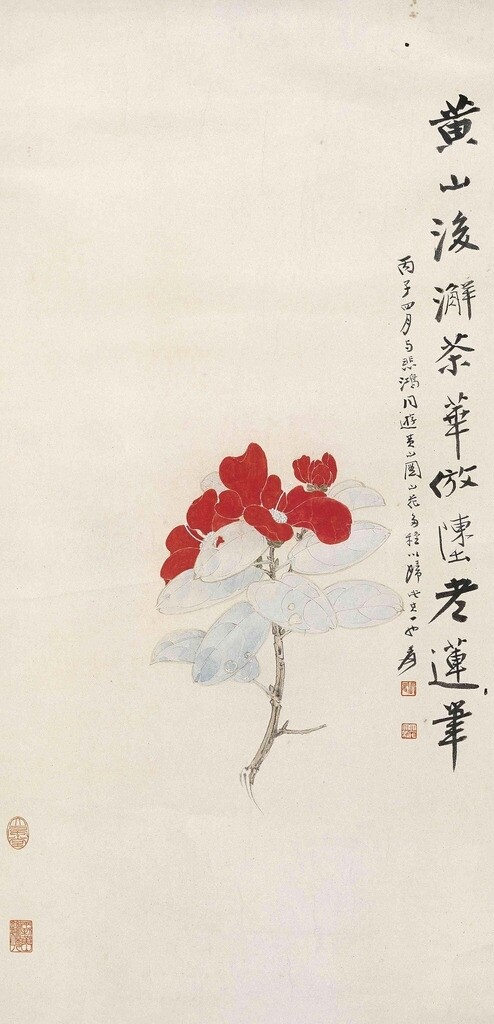 黄山後澥茶華倣陳老蓮筆
丙子四月与悲鴻同遊黄山圖山花多種以歸此其一也 爰